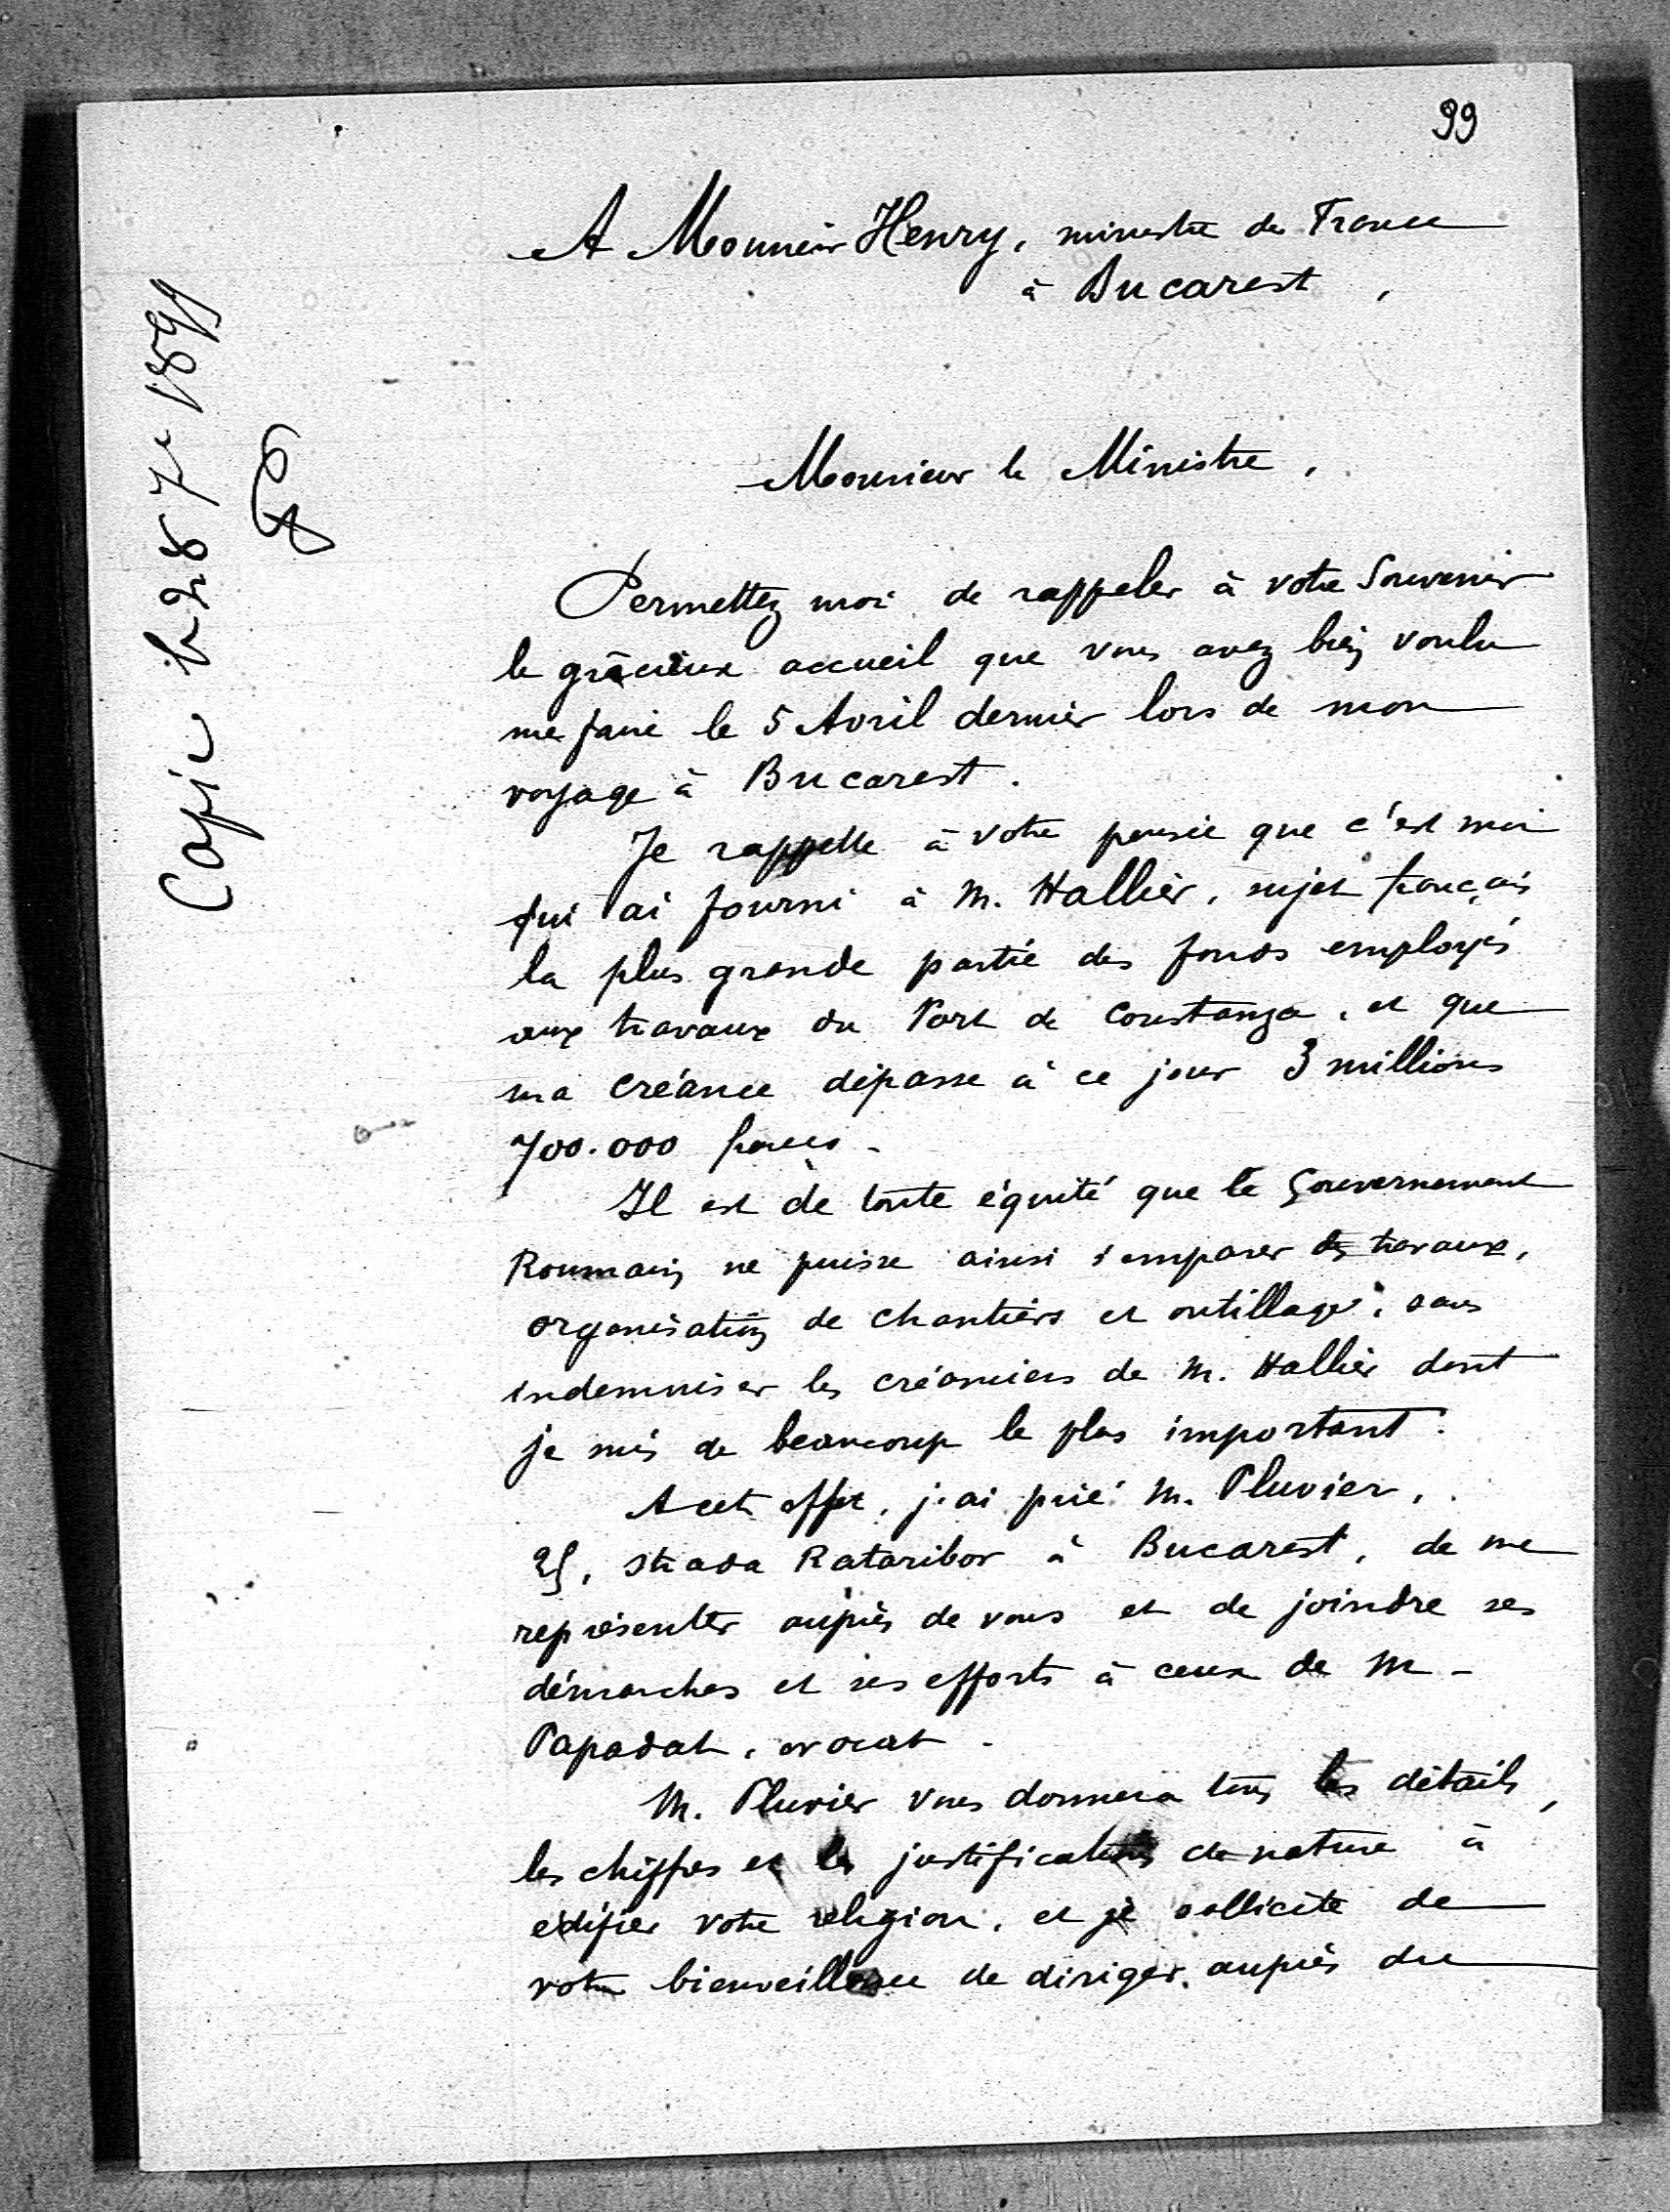 99
A Monsieur Henry, ministre de France
à Bucarest,
Copie le 28 7re 1899
Monsieur le Ministre,
Permettez moi de rappeler à votre Souvenir
le grâcieux accueil que vous avez bien voulu
me faire le 5 Avril dernier lors de mon
voyage à Bucarest.
Je rappelle à votre pensée que c'est moi
qui ai fourni à M. Hallier, sujet français
la plus grande partie des fonds employés
aux travaux du Port de Constanza, et que
ma créance dépasse à ce jour 3 millions
700.000 francs.
Il est de toute équité que le Gouvernement
Roumain ne puisse ainsi s'emparer des travaux,
organisation de chantiers et outillage, sans
indemniser les créanciers de M. Hallier dont
je suis de beaucoup le plus important.
A cet effet, j'ai prié M. Pluvier,
25, strada Rataribor à Bucarest, de me
représenter auprès de vous et de joindre ses
démarches et ses efforts à ceux de M-
Papadat, avocat.
M. Pluvier vous donnera tous les détails,
les chiffres et les justifications de nature à
édifier votre religion, et je sollicite de
votre bienveillance de diriger, auprès du